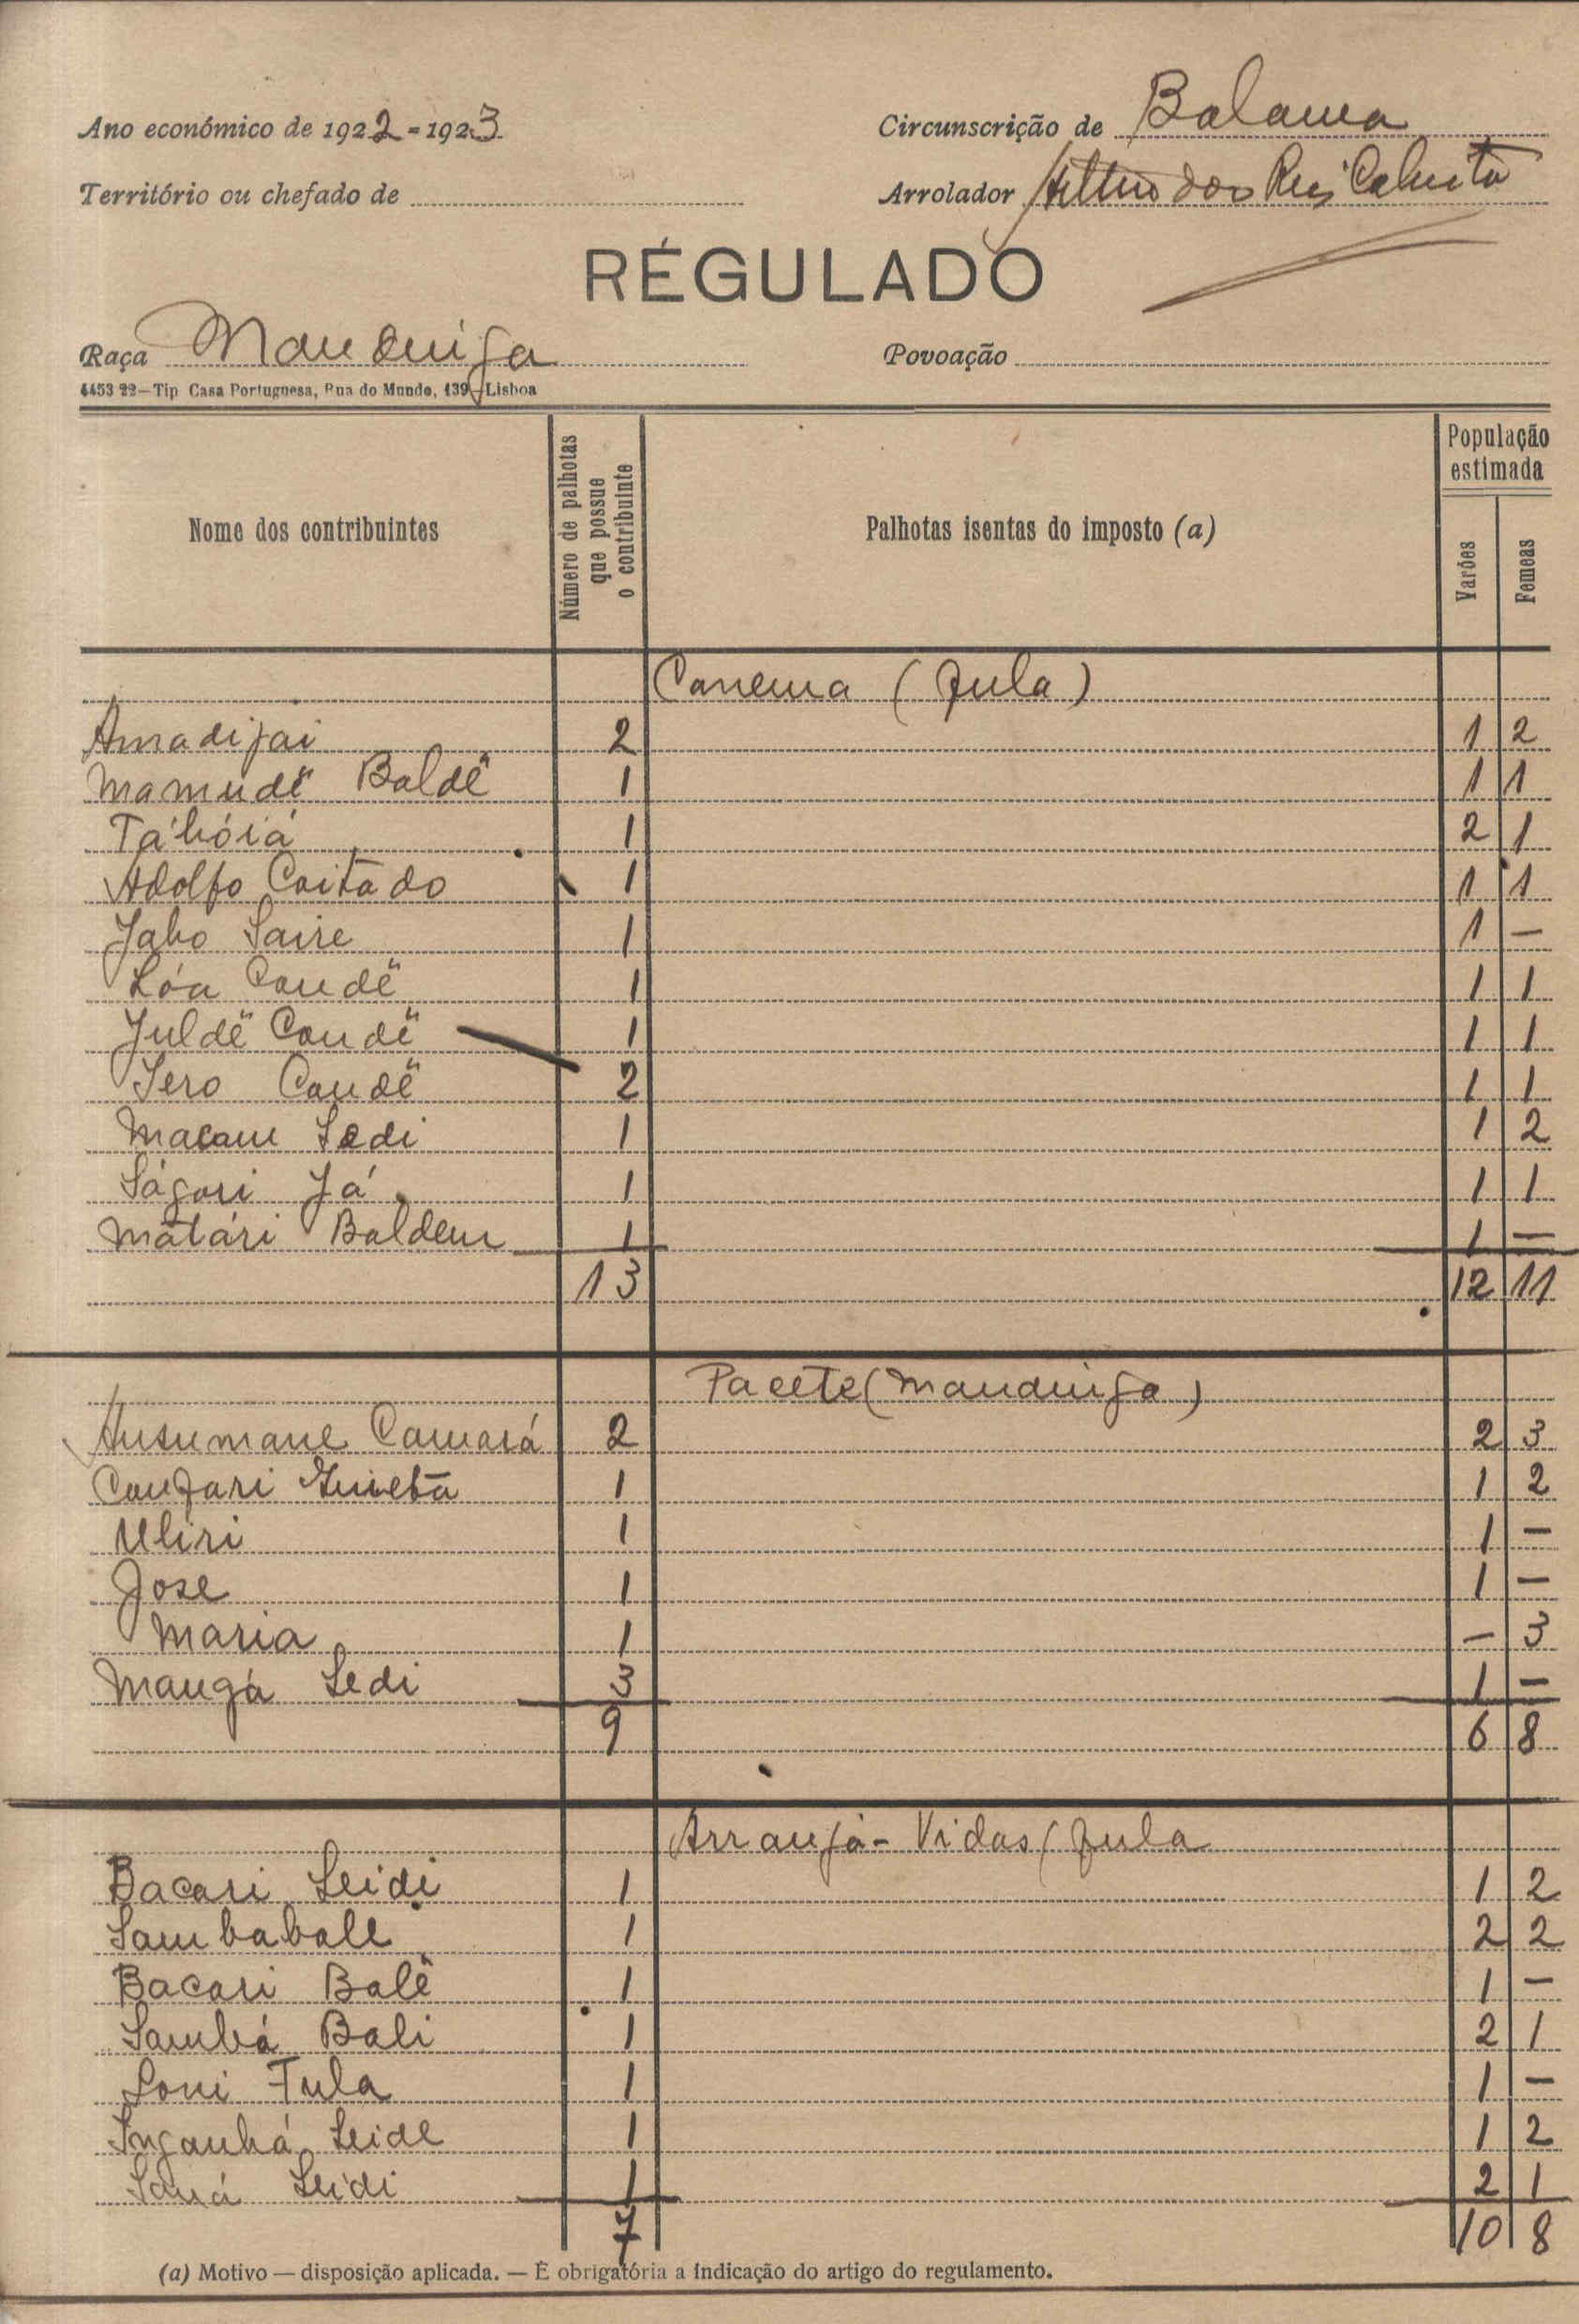 Ano económico de 1922-1923
Circunscrição de Bolama
Território ou chefado de
Arrolador dos Reis
RÉGULADO
Raça Mandinga
Povoação
4453 22—Tip Casa Portuguesa, Rua do Mundo, 139—Lisboa
Nome dos contribuintes
Número de palhotas que possue o contribuinte
Palhotas isentas do imposto (a)
População estimada
Varões
Femeas
(Fula)
Amadijai 2 1 2
Mamudé Baldé 1 1 1
1 2 1
Adolfo Coitado 1 1 1
Jabo Saire 1 1 —
Lóa Candé 1 1 1
Juldé Candé 1 1 1
Iero Candé 2 1 1
Macam Sedi 1 1 2
Ságari Já 1 1 1
Matári Baldem 1 1 —
13 12 11
Pacete (Mandinga)
Ansumane Camará 2 2 3
1 1 2
Uliri 1 1 —
Jose 1 1 —
Maria 1 — 3
Mangá Sedi 3 1 —
9 6 8
Arranja-Vidas (Fula
Bacari Seidi 1 1 2
Sambabale 1 2 2
Bacari Balé 1 1 —
Sambá Bali 1 2 1
Fula 1 1 —
Inganhá Seide 1 1 2
Saná Seidi 1 2 1
7 10 8
(a) Motivo — disposição aplicada. — É obrigatória a indicação do artigo do regulamento.